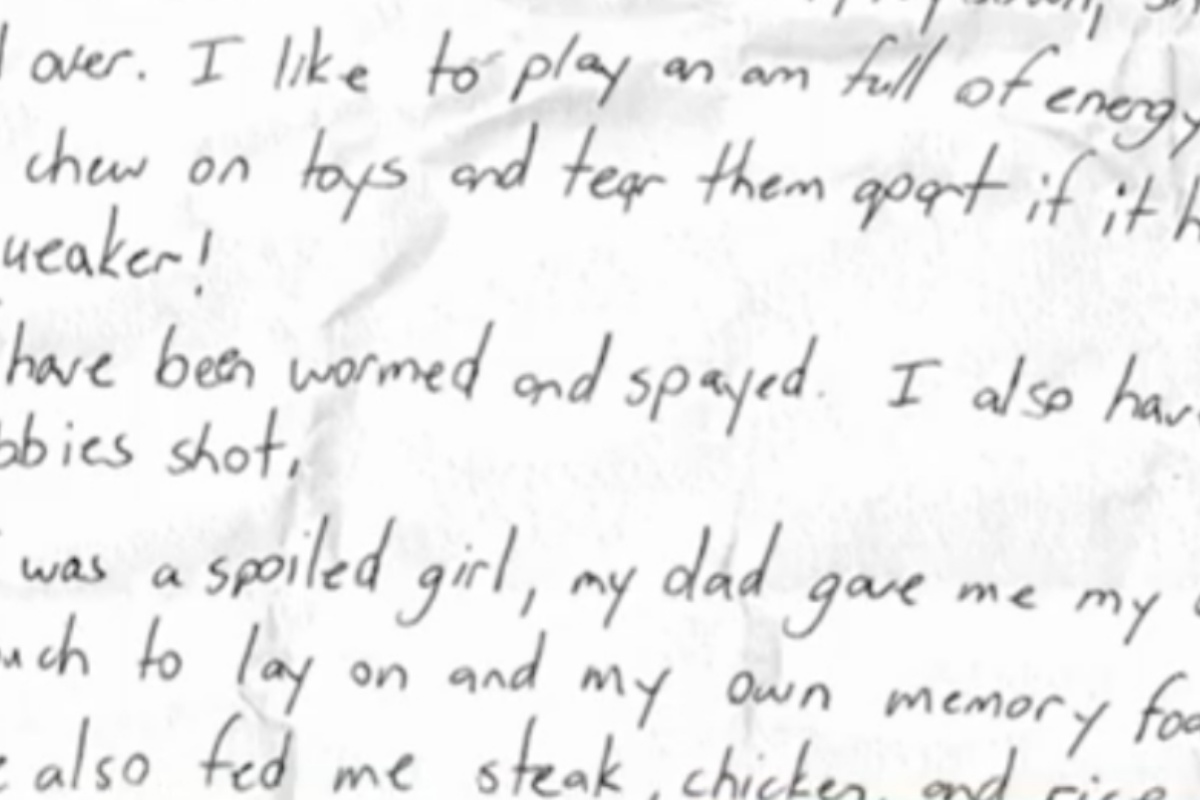 over. I like to play an am full of energy
chew on toys and tear them apart if it
ueaker!
have been wormed and spayed. I also hav
bbies shot.
was a spoiled girl, my dad gave me my
uch to lay on and my own memory foa
also fed me steak, chicken, and rice